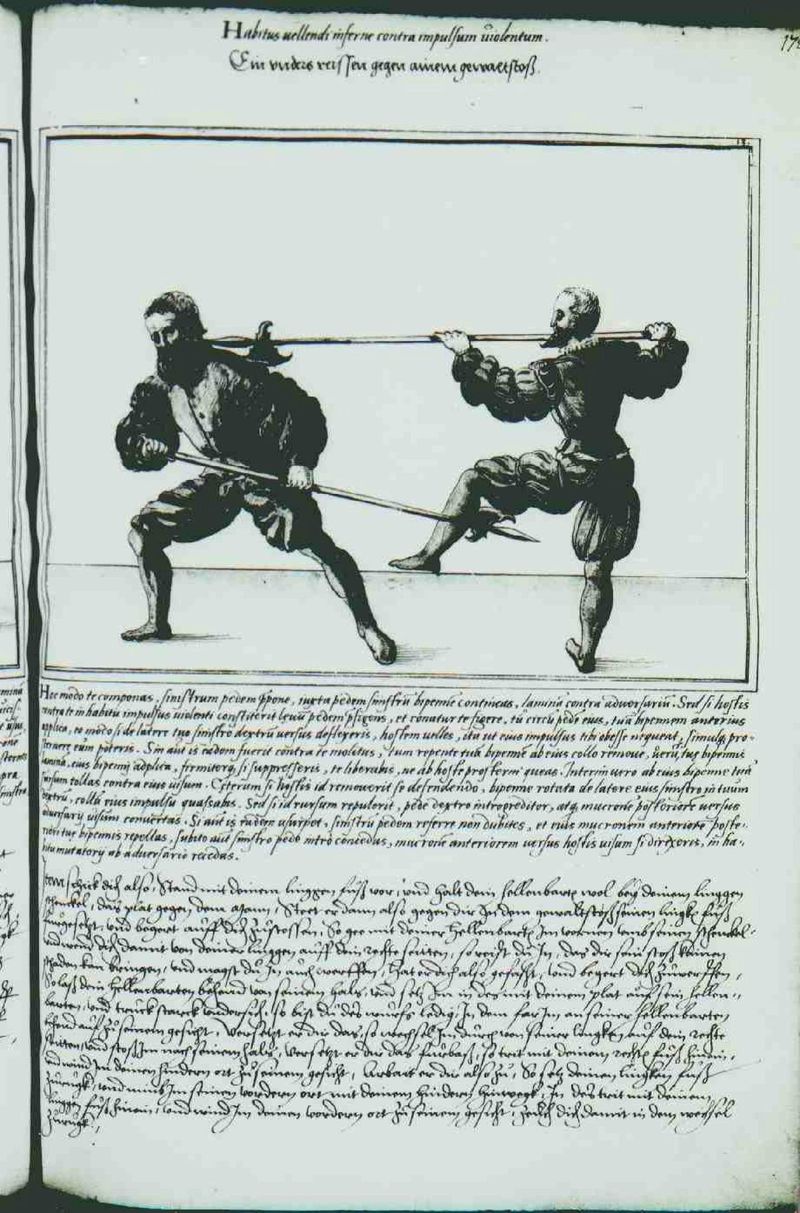 Habitus vellendi inferne contra impulsum violentum.
Ein unders reissen gegen ainem gewaltstoß.
17
Hoc modo te componas, sinistrum pedem ppone, iuxta pedem sinistrū bipennē contineas, lamina contra adversariū. Sed si hostis
in habitu impulsus violenti constiterit leuū pedem pfigens, et conatur te figere, tu circū pedē eius, tuā bipennem anterius
applica, eo modo si de latere tuo sinistro dextrū versus deflexeris, hostem velles, ita ut eius impulsus tibi obesse nequeat, simulq pro-
sternere eum poteris. Sin aut is eadem fuerit contra te molitus, tum repente tuā bipennē ab eius collo remove, verū tuę bipennis
lamina eius bipennj adplica, firmiterq si suppresseris, te liberabis, ne ab hoste prosternj queas. Interim vero ab eius bipenne tuā
rursum tollas contra eius visum. Cęterum si hostis id removerit se defendendo, bipenne rotata de latere eius sinistro in tuum
dextrū, collū eius impulsu quassabis. Sed si id rursum repulerit, pede dextro introgreditor, atq mucrone posteriore versus
adversarij visum convertas. Si aut is eadem usurpet, sinistrū pedem referre non dubites, et eius mucronem anteriorē poste-
riori tuę bipennis repellas, subito aut sinistro pede intro concedas, mucronē anteriorem versus hostis visum si direxeris, in ha-
bitu mutatorij ab adversario recedas.
Item schick dich also, Stand mit deinem linggen fuß vor, und halt dein hellenbarte wol bey deinem linggen
schenckel, das plat gegen dem mann, Steet er dann also gegen dir In dem gewaltstoß seinen lingken fuß
fürgesetzt, und begert auff dich zustossen, So gee mit deiner hellenbarte Im vornen umb seinen schenckel
und wend dich damit von deiner linggen auff dein rechte seitten, so reist du In, das dir sein stoß keinen
schaden kan bringen, und magst du In auch werffen, Hat er dich also gefasst, und begert dich zuwerffen,
So laß dein hellenbarten behend von seinem hals, und setz Im in des mit deinem plat auf sein hellen-
barten, und truck starck undersich, so bist du des wurfs ledig, In dem far Im an seiner hellenbarten
behend auf zu seinem gesicht, Versetzt er dir das, so wechsel In durch von seiner lingken auf dein rechte
seitten, und stoß Im nach seinem hals, Versetzt er dir das fürbaß, so trit mit deinem rechten fuß hinein,
und wind Im deinen hindern ort zu seinem gesicht, Arbait er dir also zu, So setz deinen lingken fuß
zurugk, und nimb Im seinen vordern ort mit deinem hindern hinwegk, In des trit mit deinem
linggen fuß hinein, und wind Im deinen vordern ort zu seinem gesicht, zeuch dich damit in dem wechsel
zurugk.